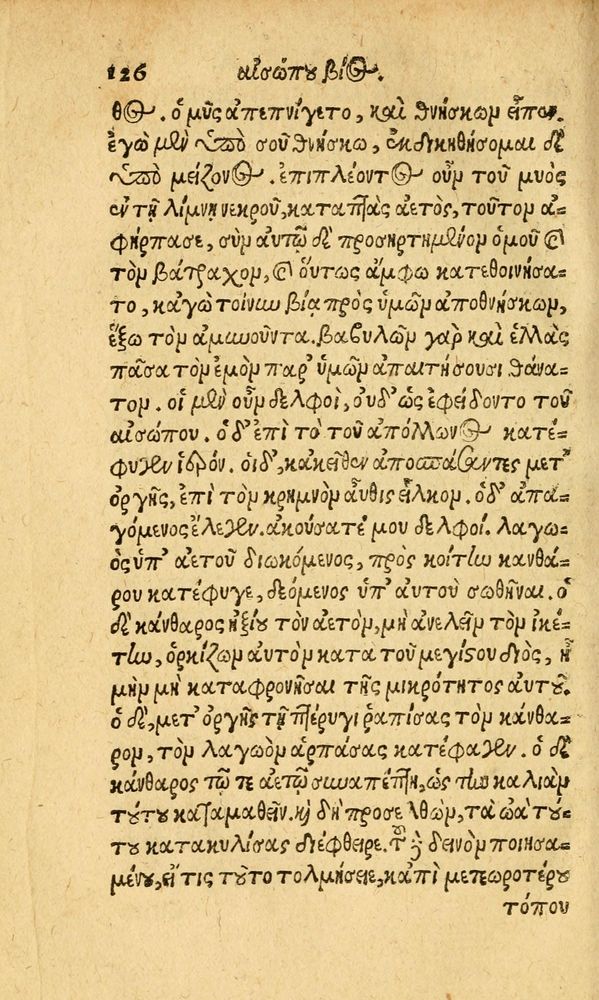 126 αἰσώπου βίος.
θος. ὁ μῦς ἀπεπνίγετο, καὶ θνήσκων εἶπεν.
ἐγὼ μὲν ὑπὸ σοῦ θνήσκω, ἐκδικηθήσομαι δὲ
ὑπὸ μείζονος. ἐπιπλέοντος οὖν τοῦ μυὸς
ἐν τῇ λίμνῃ νεκροῦ, καταπτὰς ἀετὸς, τοῦτον ἀ=
φήρπασε, σὺν αὐτῷ δὲ προσηρτημένον ὁμοῦ καὶ
τὸν βάτραχον, καὶ οὕτως ἄμφω κατεθοινήσα=
το, κἀγὼ τοίνυν βίᾳ πρὸς ὑμῶν ἀποθνήσκων,
ἕξω τὸν ἀμυνοῦντα. βαβυλὼν γὰρ καὶ ἑλλὰς
πᾶσα τὸν ἐμὸν παρ' ὑμῶν ἀπαιτήσουσι θάνα=
τον. οἱ μὲν οὖν δελφοὶ, οὐδ' ὡς ἐφείδοντο τοῦ
αἰσώπου. ὁ δ' ἐπὶ τὸ τοῦ ἀπόλλωνος κατέ=
φυγεν ἱερόν. οἱ δ', κἀκεῖθεν ἀποσπάσαντες μετ'
ὀργῆς, ἐπὶ τὸν κρημνὸν αὖθις εἷλκον. ὁ δ' ἀπα=
γόμενος ἔλεγεν. ἀκούσατέ μου δελφοί. λαγω=
ὸς ὑπ' ἀετοῦ διωκόμενος, πρὸς κοίτην κανθά=
ρου κατέφυγε, δεόμενος ὑπ' αὐτοῦ σωθῆναι. ὁ
δὲ κάνθαρος ἠξίου τὸν ἀετὸν, μὴ ἀνελεῖν τὸν ἱκέ=
την, ὁρκίζων αὐτὸν κατὰ τοῦ μεγίστου διὸς, ἦ
μὴν μὴ καταφρονῆσαι τῆς μικρότητος αὐτοῦ.
ὁ δὲ, μετ' ὀργῆς τῇ πτέρυγι ῥαπίσας τὸν κάνθα=
ρον, τὸν λαγωὸν ἁρπάσας κατέφαγεν. ὁ δὲ
κάνθαρος τῷ τε ἀετῷ συναπέπτη, ὡς τὴν καλιὰν
τούτου καταμαθεῖν. καὶ δὴ προσελθὼν, τὰ ὠὰ τού=
του κατακυλίσας διέφθειρε. τοῦ δὲ δεινὸν ποιησα=
μένου, εἴ τις τοῦτο τολμήσειε, κἀπὶ μετεωροτέρου
τόπου